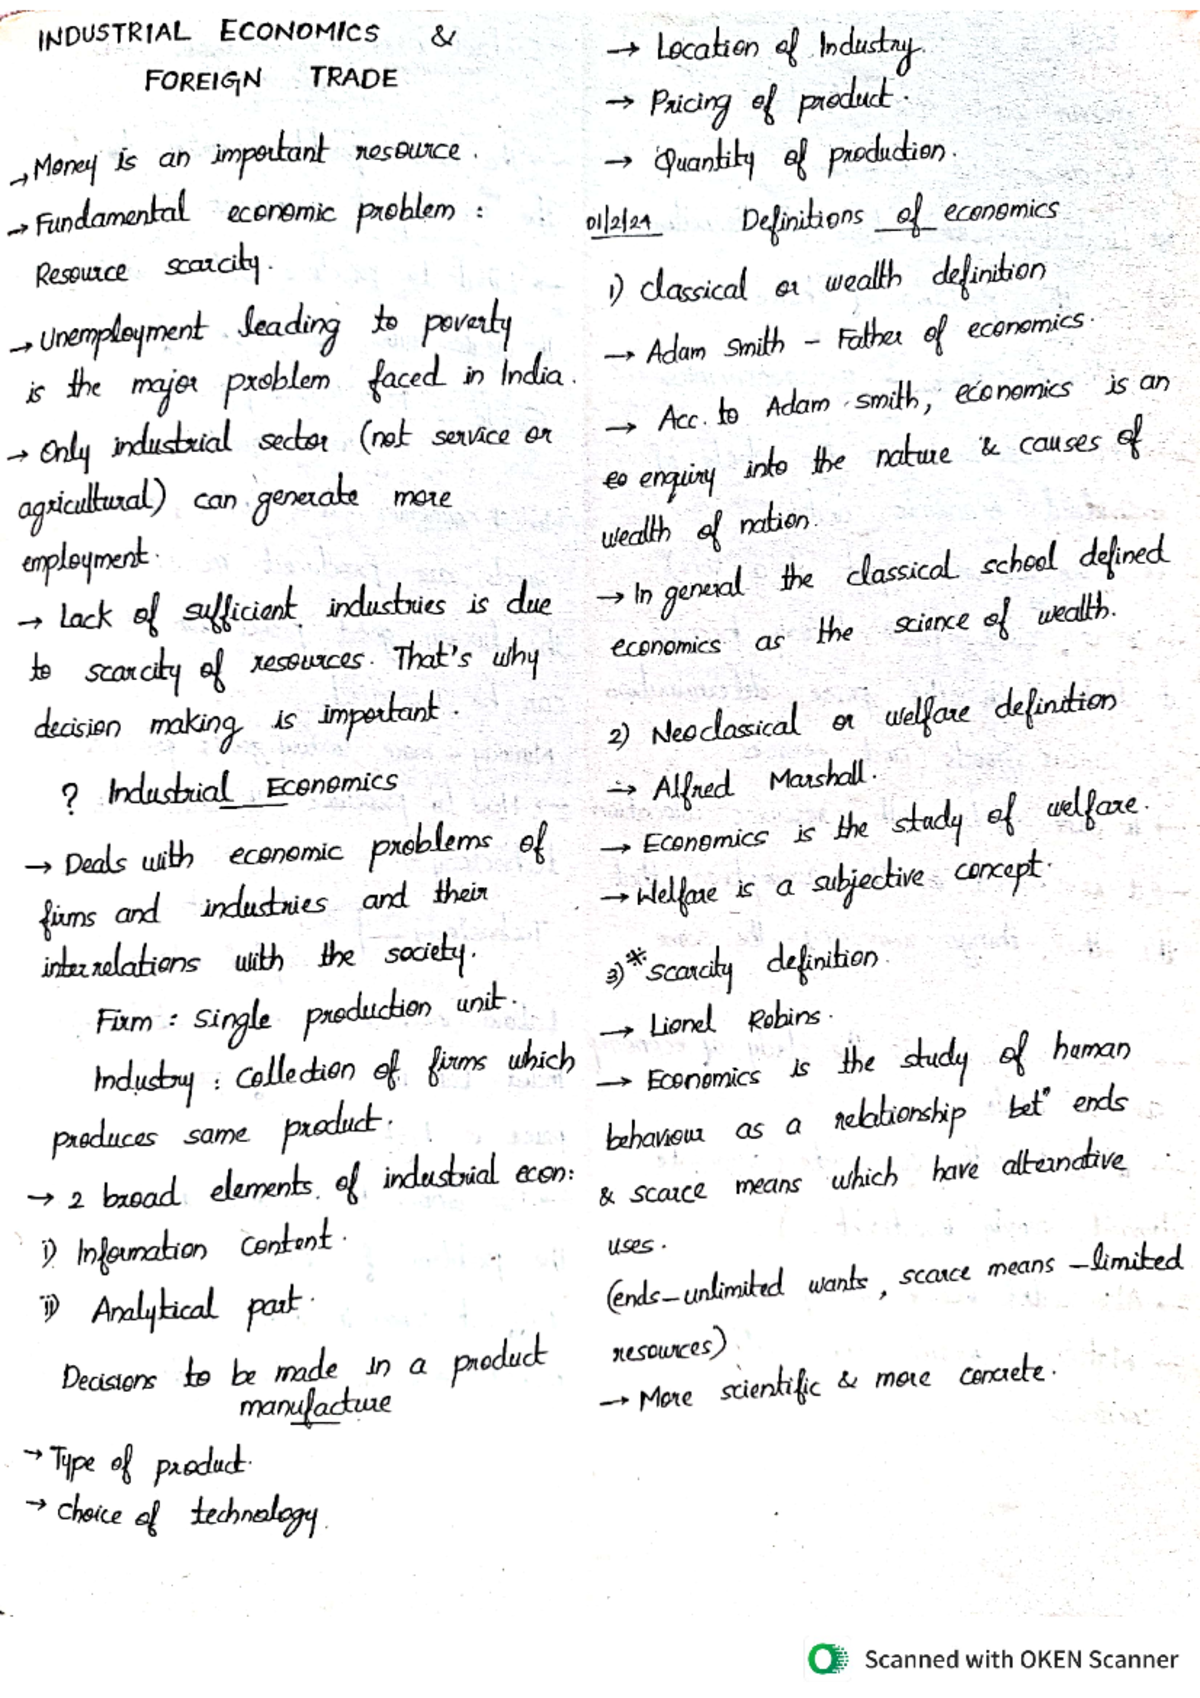 INDUSTRIAL ECONOMICS &
FOREIGN TRADE
→ Money is an important resource.
→ Fundamental economic problem :
Resource scarcity.
→ Unemployment leading to poverty
is the major problem faced in India.
→ Only industrial sector (not service or
agricultural) can generate more
employment.
→ Lack of sufficient industries is due
to scarcity of resources. That's why
decision making is important.
? Industrial Economics
→ Deals with economic problems of
firms and industries and their
interrelations with the society.
Firm : Single production unit.
Industry : Collection of firms which
produces same product.
→ 2 broad elements of industrial econ:
i) Information content.
ii) Analytical part.
Decisions to be made in a product
manufacture
→ Type of product.
→ Choice of technology.
→ Location of Industry.
→ Pricing of product.
→ Quantity of production.
01/2/24 Definitions of economics
1) Classical or wealth definition
→ Adam Smith - Father of economics.
→ Acc. to Adam smith, economics is an
eo enquiry into the nature & causes of
wealth of nation.
→ In general the classical school defined
economics as the science of wealth.
2) Neoclassical or welfare definition
→ Alfred Marshall.
→ Economics is the study of welfare.
→ Welfare is a subjective concept.
3)* Scarcity definition.
→ Lionel Robins.
→ Economics is the study of human
behaviour as a relationship betⁿ ends
& scarce means which have alternative
uses.
(ends-unlimited wants, scarce means - limited
resources)
→ More scientific & more concrete.
Scanned with OKEN Scanner